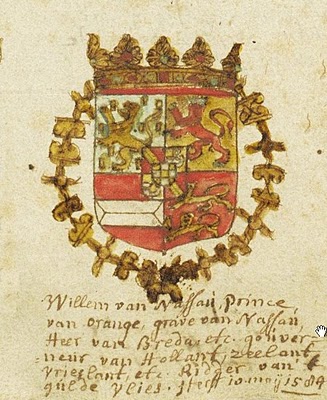 Willem van Nassau, Prince
van orange, grave van Nassau,
Heer van Breda, etc. gouver-
neur van Hollant, zeelant
vrieslant, etc. Ridder van
gulde vlies. sterf 10 meij 1584